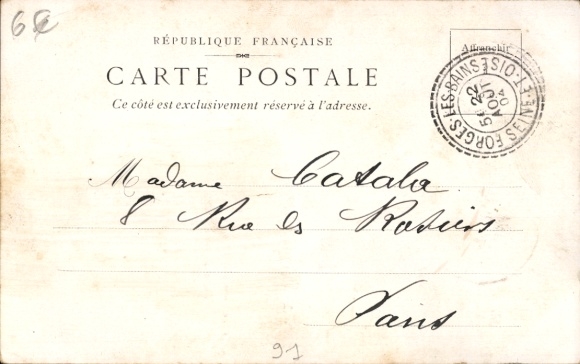 6€
RÉPUBLIQUE FRANÇAISE
Affranchir
CARTE POSTALE
Ce côté est exclusivement réservé à l'adresse.
FORGES-LES-BAINS
SEINE-ET-OISE
22
AOUT
04
Madame Catala
8 Rue des Rosiers
Paris
91